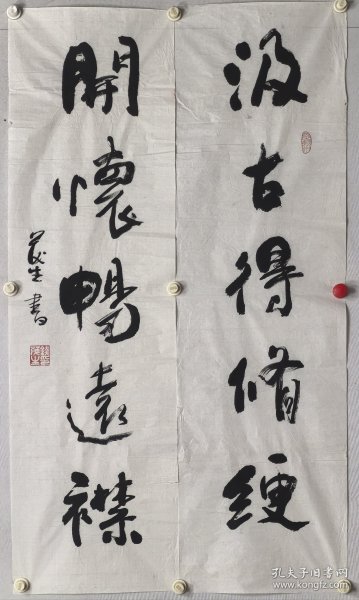 汲古得脩綆
開懷暢遠襟
茂生書
孔夫子旧书网
www.kongfz.com